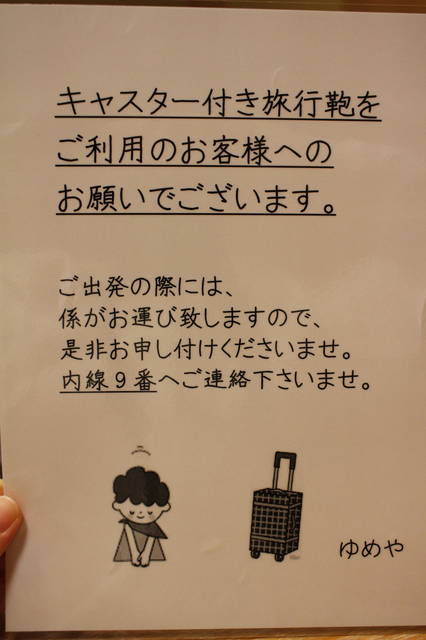 キャスター付き旅行鞄を
ご利用のお客様への
お願いでございます。
ご出発の際には、
係がお運び致しますので、
是非お申し付けくださいませ。
内線9番へご連絡下さいませ。
ゆめや